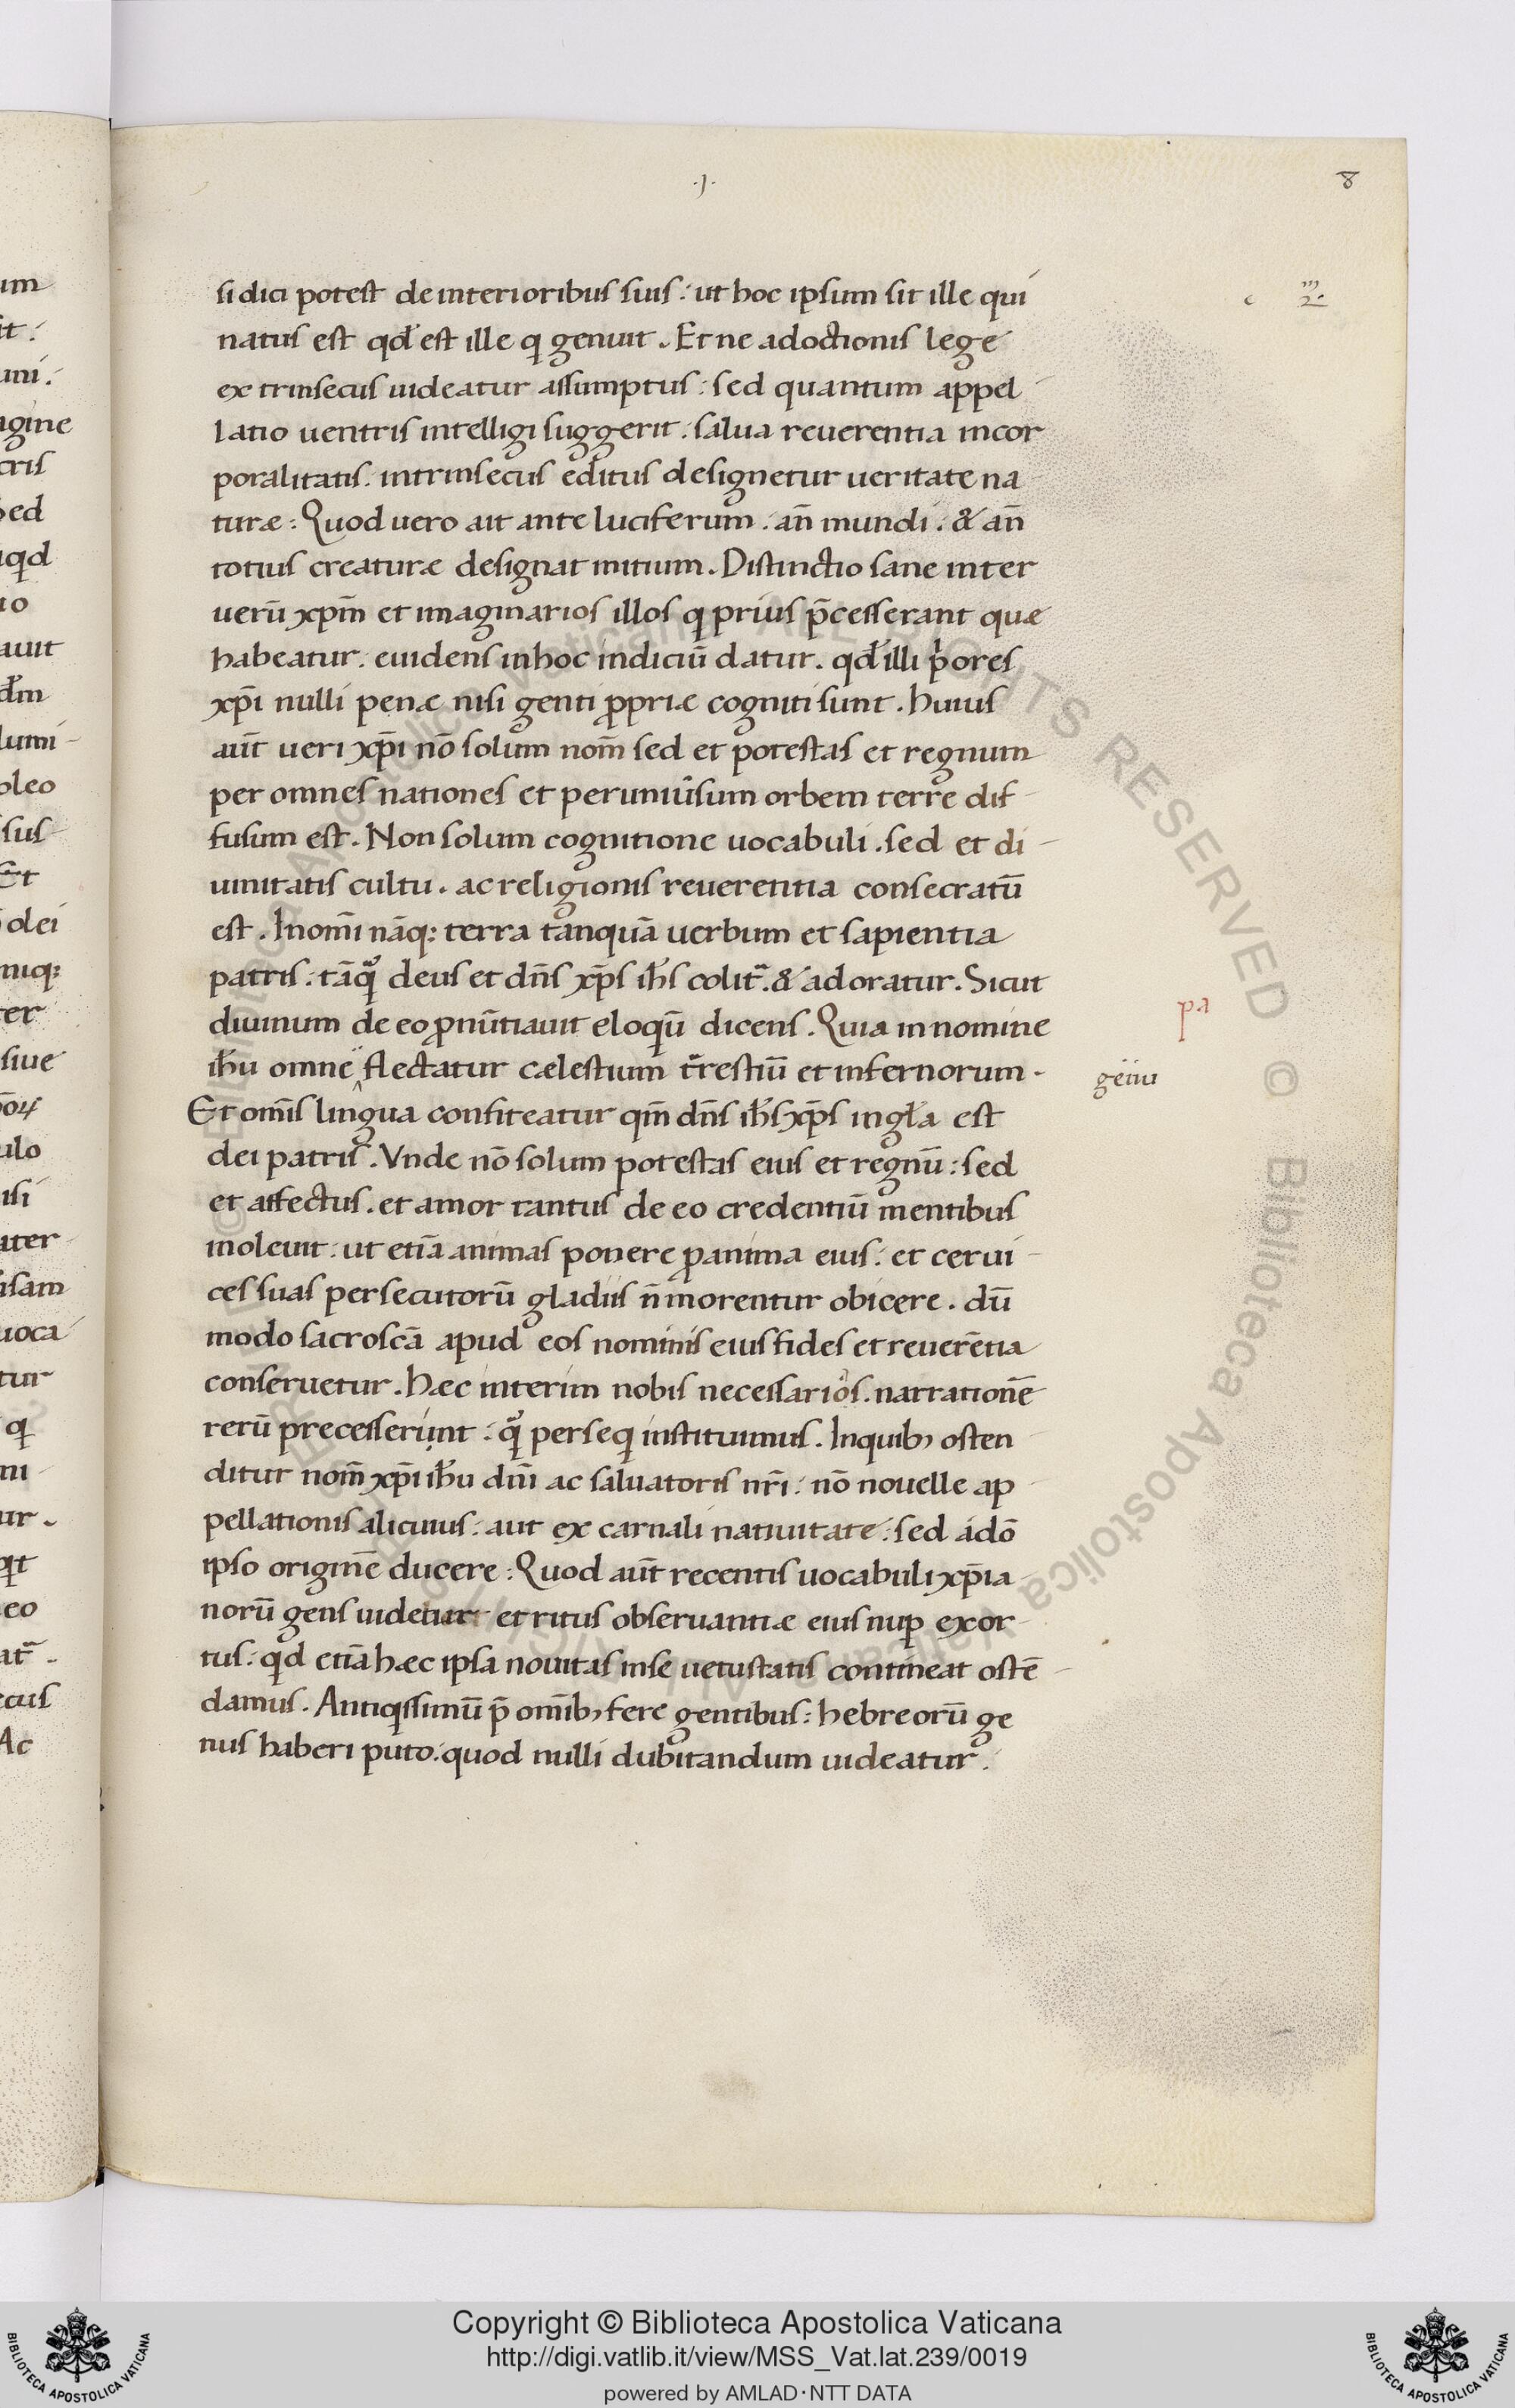 .I.
8
si dici potest de interioribus suis: ut hoc ipsum sit ille qui
natus est qđ est ille q genuit. Et ne adoctionis lege
extrinsecus uideatur assumptus: sed quantum appel
latio uentris intelligi suggerit: salua reuerentia incor
poralitatis. intrinsecus editus designetur ueritate na
turæ: Quod uero ait ante luciferum. an̄ mundi. & an̄
totius creaturæ designat initium. Distinctio sane inter
uerū xpm̄ et imaginarios illos q prius p̄cesserant quæ
habeatur. euidens in hoc indiciū datur. qđ illi p̍ores
xp̄i nulli penæ nisi genti ꝓpriæ cogniti sunt. huius
aūt ueri xp̄i nō solum nom̄ sed et potestas et regnum
per omnes nationes et per uniūsum orbem terre dif
fusum est. Non solum cognitione uocabuli. sed et di
uinitatis cultu. ac religionis reuerentia consecratū
est. In om̄i nāq: terra tanquā uerbum et sapientia
patris: tāq̊ deus et dn̄s xp̄s ih̄s colit̄. & adoratur. Sicut
diuinum de eo ꝓnūtiauit eloqū dicens. Quia in nomine
pa
ih̄u omne flectatur cælestium t̄restiū et infernorum.
genu
Et om̄is lingua confiteatur qm̄ dn̄s ih̄s xp̄s in gl̄a est
dei patris. Vnde nō solum potestas eius et regnū: sed
et affectus. et amor tantus de eo credentiū mentibus
inoleuit: ut etiā animas ponere ꝓ anima eius: et cerui
ces suas persecutorū gladiis n̄ morentur obicere. dū
modo sacroscā apud eos nominis eius fides et reuerētia
conseruetur. hæc interim nobis necessarios. narrationē
rerū precesserunt: q̊ perseq instituimus. In quib, osten
ditur nom̄ xp̄i ih̄u dn̄i ac saluatoris nr̄i: nō nouelle ap
pellationis alicuius: aut ex carnali natiuitate: sed a dō
ipso originē ducere: Quod aūt recentis uocabuli xp̄ia
norū gens uidetur et ritus obseruantiæ eius nuꝑ exor
tus: qd etiā hæc ipsa nouitas in se uetustatis contineat ostē
damus. Antiqissimū p̄ om̄ib, fere gentibus: hebreorū ge
nus haberi puto: quod nulli dubitandum uideatur.
Copyright © Biblioteca Apostolica Vaticana
http://digi.vatlib.it/view/MSS_Vat.lat.239/0019
powered by AMLAD·NTT DATA